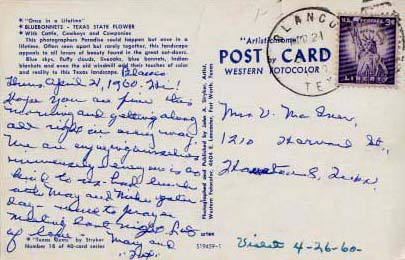 ★ "Once in a Lifetime" ★
★ BLUEBONNETS - TEXAS STATE FLOWER
★ With Cattle, Cowboys and Companions
This photographers Paradise could happen but once in a lifetime. Often seen apart but rarely together, this landscape appeals to all lovers of beauty found in the great out-doors.
Blue skys, fluffy clouds, live-oaks, blue bonnets, Indian blankets and even the old windmill add their touches of color and reality to this Texas landscape.
Blanco
Thurs April 21, 1960. Hi!
Hope you are fine this
morning and getting along
all right in every way.
We are enjoying ourselves
immensely everyone is so
kind to us - had lunch
with May and Mike yesterday -
went to prayer
meeting last night. Lots
of love - May and
"Texas Gems" by Stryker
Number 18 of 40-card series
S19459-1
Photographed and Published by John A. Stryker, Artist,
Western Fotocolor, 4604 E. Lancaster, Fort Worth, Texas
"Artist-chrome"
POST CARD
by
WESTERN FOTOCOLOR
BLANCO
APR 21
TEX
U.S. POSTAGE 3¢
LIBERTY
Mrs V. 
1210 Harvard St.,
Houston 8, Texas.
Visit 4-26-60-